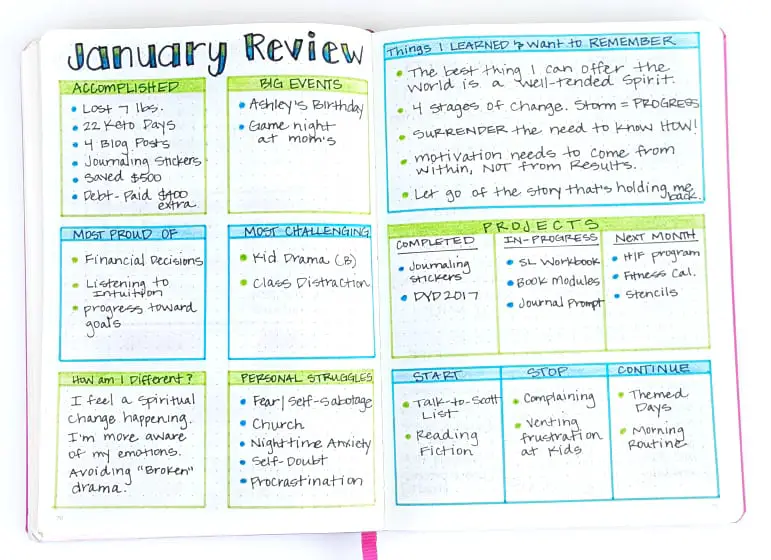 January Review
ACCOMPLISHED
Lost 7 lbs.
22 Keto Days
4 Blog Posts
Journaling Stickers
Saved $500
Debt-Paid $400
extra
BIG EVENTS
Ashley's Birthday
Game night
at mom's
MOST PROUD OF
Financial Decisions
Listening to
Intuition
progress toward
goals
MOST CHALLENGING
Kid Drama (B)
Class Distraction
How am I Different?
I feel a spiritual
change happening.
I'm more aware
of my emotions.
Avoiding "Broken"
drama.
PERSONAL STRUGGLES
Fear/Self-Sabotage
Church
Nighttime Anxiety
Self-Doubt
Procrastination
Things I LEARNED & Want to REMEMBER
The best thing I can offer the
world is a well-tended Spirit.
4 stages of change. Storm = PROGRESS
SURRENDER the need to know HOW!
motivation needs to come from
within, NOT from Results.
Let go of the story that's holding me
back.
PROJECTS
COMPLETED
Journaling
stickers
DYD2017
IN-PROGRESS
SL Workbook
Book Modules
Journal Prompt
NEXT MONTH
H/F program
Fitness Cal.
Stencils
START
Talk-to-Scott
List
Reading
Fiction
STOP
Complaining
Venting
frustration
at Kids
CONTINUE
Themed
Days
Morning
Routine